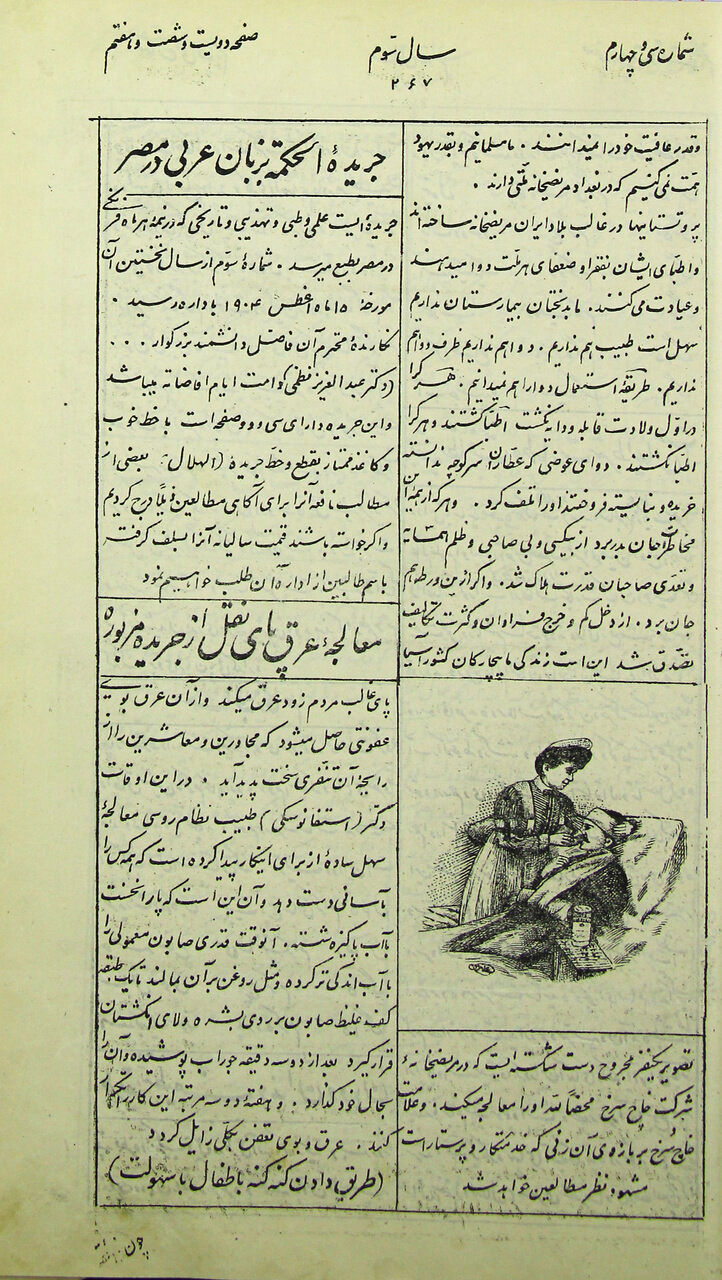 شماره سی و چهارم
سال سوّم
صفحه دویست و شصت و هفتم
۲۶۷
و قدر عافیت خود را نمیدانند . ما مسلمانیم و بقدر یهود
همّت نمی‌کنیم که در بغداد مریضخانه ملّتی دارند .
پروتستانیها در غالب بلاد ایران مریضخانه ساخته‌اند
و اطبّای ایشان بفقرا و ضعفای هر ملّت دوا میدهند
و عیادت می‌کنند . ما بدبختان بیمارستان نداریم
سهل است طبیب هم نداریم . دوا هم نداریم ظرف دوا هم
نداریم . طریقهٔ استعمال دوا را هم نمیدانیم . هر کرا
در اوّل ولادت قابله و دایه نکشت اطبّا کشتند و هر کرا
اطبّا نکشتند . دوای عوضی که عطّاران سر کوچه ندانسته
خریده و نبایسته فروختند او را تلف کرد . و هر که از همهٔ این
مخاطرات جان بدر برد از بیکسی و بی صاحبی و ظلم همسایه
و تعدّی صاحبان قدرت هلاک شد . و اگر از این ورطه هم
جان برد . از دخل کم و خرج فراوان و کثرت تکالیف
تصدّق شد این است زندگی ما بیچارگان کشور آسیا
تصویر یکنفر مجروح دست شکسته ایست که در مریضخانهٔ
شرکت خاج سرخ محضاً لله او را معالجه میکنند . و علامت
خاج سرخ بر بازوی آن زنی که خدمتکار و پرستار است
مشهود نظر مطالعین خواهد شد
جریدهٔ الحکمة بزبان عربی در مصر
جریدهٔ ایست علمی و طبی و تهذیبی و تاریخی که در نیمهٔ هر ماه فرنگی
در مصر بطبع میرسد . شمارهٔ سوّم از سال نخستین آن
مورخهٔ ۱۵ ماه اغطس ۱۹۰۴ باداره رسید .
نگارندهٔ محترم آن فاضل دانشمند بزرگوار . . .
(دکتر عبد العزیز نظمی) دامت ایام افاضاته میباشد
و این جریده دارای سی و دو صفحه است با خط خوب
و کاغذ ممتاز بقطع و خط جریدهٔ (الهلال) بعضی از
مطالب نافعه آنرا برای آگاهی مطالعین ذیلاً درج کردیم
و اگر خواسته باشند قیمت سالیانه آنرا سلف گرفته
باسم طالبین از اداره آن طلب خواهیم نمود
معالجهٔ عرق پای نقل از جریده مزبوره
پای غالب مردم زود عرق میکند و از آن عرق بویی
عفونتی حاصل میشود که مجاورین و معاشرین را از
رایحهٔ آن تنفّری سخت پدید آید . در این اوقات
دکتر (استفانوسکی) طبیب نظام روسی معالجهٔ
سهل سادهٔ از برای اینکار پیدا کرده است که همه کس را
بآسانی دست دهد و آن این است که پا را نخست
با آب پاکیزه شسته . آنوقت قدری صابون معمولی را
با آب اندکی تر کرده و مثل روغن بر آن بمالند تا یک طبقه
کف غلیظ صابون بر روی بشره و لای انگشتان
قرار گیرد بعد از دو سه دقیقه جوراب پوشیده و آن را
بحال خود گذارد . و هفتهٔ دو سه مرتبه این کار را تکرار
کنند . عرق و بوی تعفن بکلّی زایل گردد
(طریق دادن کنه کنه باطفال با سهولت)
چون